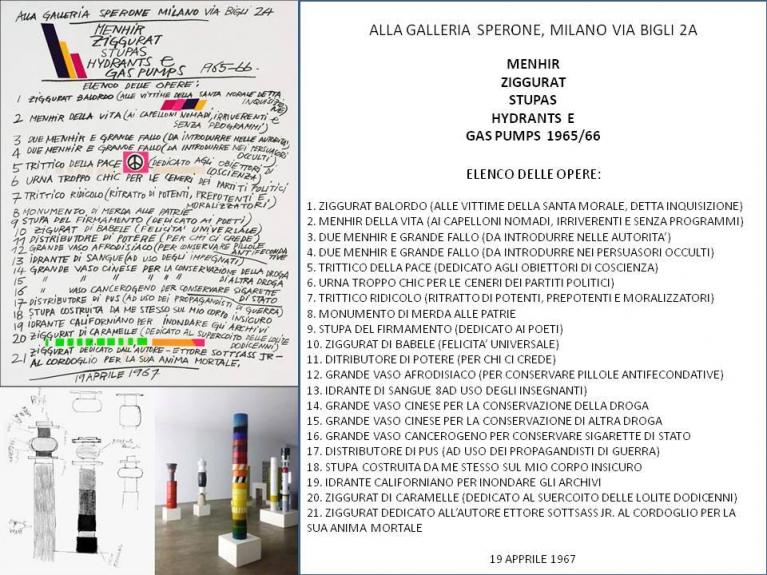 ALLA GALLERIA SPERONE MILANO VIA BIGLI 2A
MENHIR
ZIGGURAT
STUPAS
HYDRANTS E
GAS PUMPS 1965-66.
ELENCO DELLE OPERE:
1 ZIGGURAT BALORDO (ALLE VITTIME DELLA SANTA MORALE DETTA
INQUISIZIONE)
2 MENHIR DELLA VITA (AI CAPELLONI NOMADI, IRRIVERENTI E
SENZA PROGRAMMI)
3 DUE MENHIR E GRANDE FALLO (DA INTRODURRE NELLE AUTORITÀ)
4 DUE MENHIR E GRANDE FALLO (DA INTRODURRE NEI PERSUASORI
OCCULTI)
5 TRITTICO DELLA PACE (DEDICATO AGLI OBIETTORI DI
COSCIENZA)
6 URNA TROPPO CHIC PER LE CENERI DEI PARTITI POLITICI
7 TRITTICO RIDICOLO (RITRATTO DI POTENTI, PREPOTENTI E
MORALIZZATORI)
8 MONUMENTO DI MERDA ALLE PATRIE
9 STUPA DEL FIRMAMENTO (DEDICATO AI POETI)
10 ZIGGURAT DI BABELE (FELICITA' UNIVERSALE)
11 DISTRIBUTORE DI POTERE (PER CHI CI CREDE)
12 GRANDE VASO AFRODISIACO (PER CONSERVARE PILLOLE
ANTIFECONDATIVE
13 IDRANTE DI SANGUE (AD USO DEGLI IMPEGNATI)
14 GRANDE VASO CINESE PER LA CONSERVAZIONE DELLA DROGA
15 " " " " " DI ALTRA DROGA
16 " VASO CANCEROGENO PER CONSERVARE SIGARETTE
DI STATO
17 DISTRIBUTORE DI PUS (AD USO DEI PROPAGANDISTI DI GUERRA)
18 STUPA COSTRUITA DA ME STESSO SUL MIO CORPO INSICURO
19 IDRANTE CALIFORNIANO PER INONDARE GLI ARCHIVI
20 ZIGGURAT DI CARAMELLE (DEDICATO AL SUPERCOITO DELLE LOLITE
DODICENNI)
21 ZIGGURAT DEDICATO DALL'AUTORE - ETTORE SOTTSASS JR-
AL CORDOGLIO PER LA SUA ANIMA MORTALE.
19 APRILE 1967
ALLA GALLERIA SPERONE, MILANO VIA BIGLI 2A
MENHIR
ZIGGURAT
STUPAS
HYDRANTS E
GAS PUMPS 1965/66
ELENCO DELLE OPERE:
1. ZIGGURAT BALORDO (ALLE VITTIME DELLA SANTA MORALE, DETTA INQUISIZIONE)
2. MENHIR DELLA VITA (AI CAPELLONI NOMADI, IRRIVERENTI E SENZA PROGRAMMI)
3. DUE MENHIR E GRANDE FALLO (DA INTRODURRE NELLE AUTORITA')
4. DUE MENHIR E GRANDE FALLO (DA INTRODURRE NEI PERSUASORI OCCULTI)
5. TRITTICO DELLA PACE (DEDICATO AGLI OBIETTORI DI COSCIENZA)
6. URNA TROPPO CHIC PER LE CENERI DEI PARTITI POLITICI)
7. TRITTICO RIDICOLO (RITRATTO DI POTENTI, PREPOTENTI E MORALIZZATORI)
8. MONUMENTO DI MERDA ALLE PATRIE
9. STUPA DEL FIRMAMENTO (DEDICATO AI POETI)
10. ZIGGURAT DI BABELE (FELICITA' UNIVERSALE)
11. DITRIBUTORE DI POTERE (PER CHI CI CREDE)
12. GRANDE VASO AFRODISIACO (PER CONSERVARE PILLOLE ANTIFECONDATIVE)
13. IDRANTE DI SANGUE 8AD USO DEGLI INSEGNANTI)
14. GRANDE VASO CINESE PER LA CONSERVAZIONE DELLA DROGA
15. GRANDE VASO CINESE PER LA CONSERVAZIONE DI ALTRA DROGA
16. GRANDE VASO CANCEROGENO PER CONSERVARE SIGARETTE DI STATO
17. DISTRIBUTORE DI PUS (AD USO DEI PROPAGANDISTI DI GUERRA)
18. STUPA COSTRUITA DA ME STESSO SUL MIO CORPO INSICURO
19. IDRANTE CALIFORNIANO PER INONDARE GLI ARCHIVI
20. ZIGGURAT DI CARAMELLE (DEDICATO AL SUERCOITO DELLE LOLITE DODICENNI)
21. ZIGGURAT DEDICATO ALL'AUTORE ETTORE SOTTSASS JR. AL CORDOGLIO PER LA
SUA ANIMA MORTALE
19 APPRILE 1967